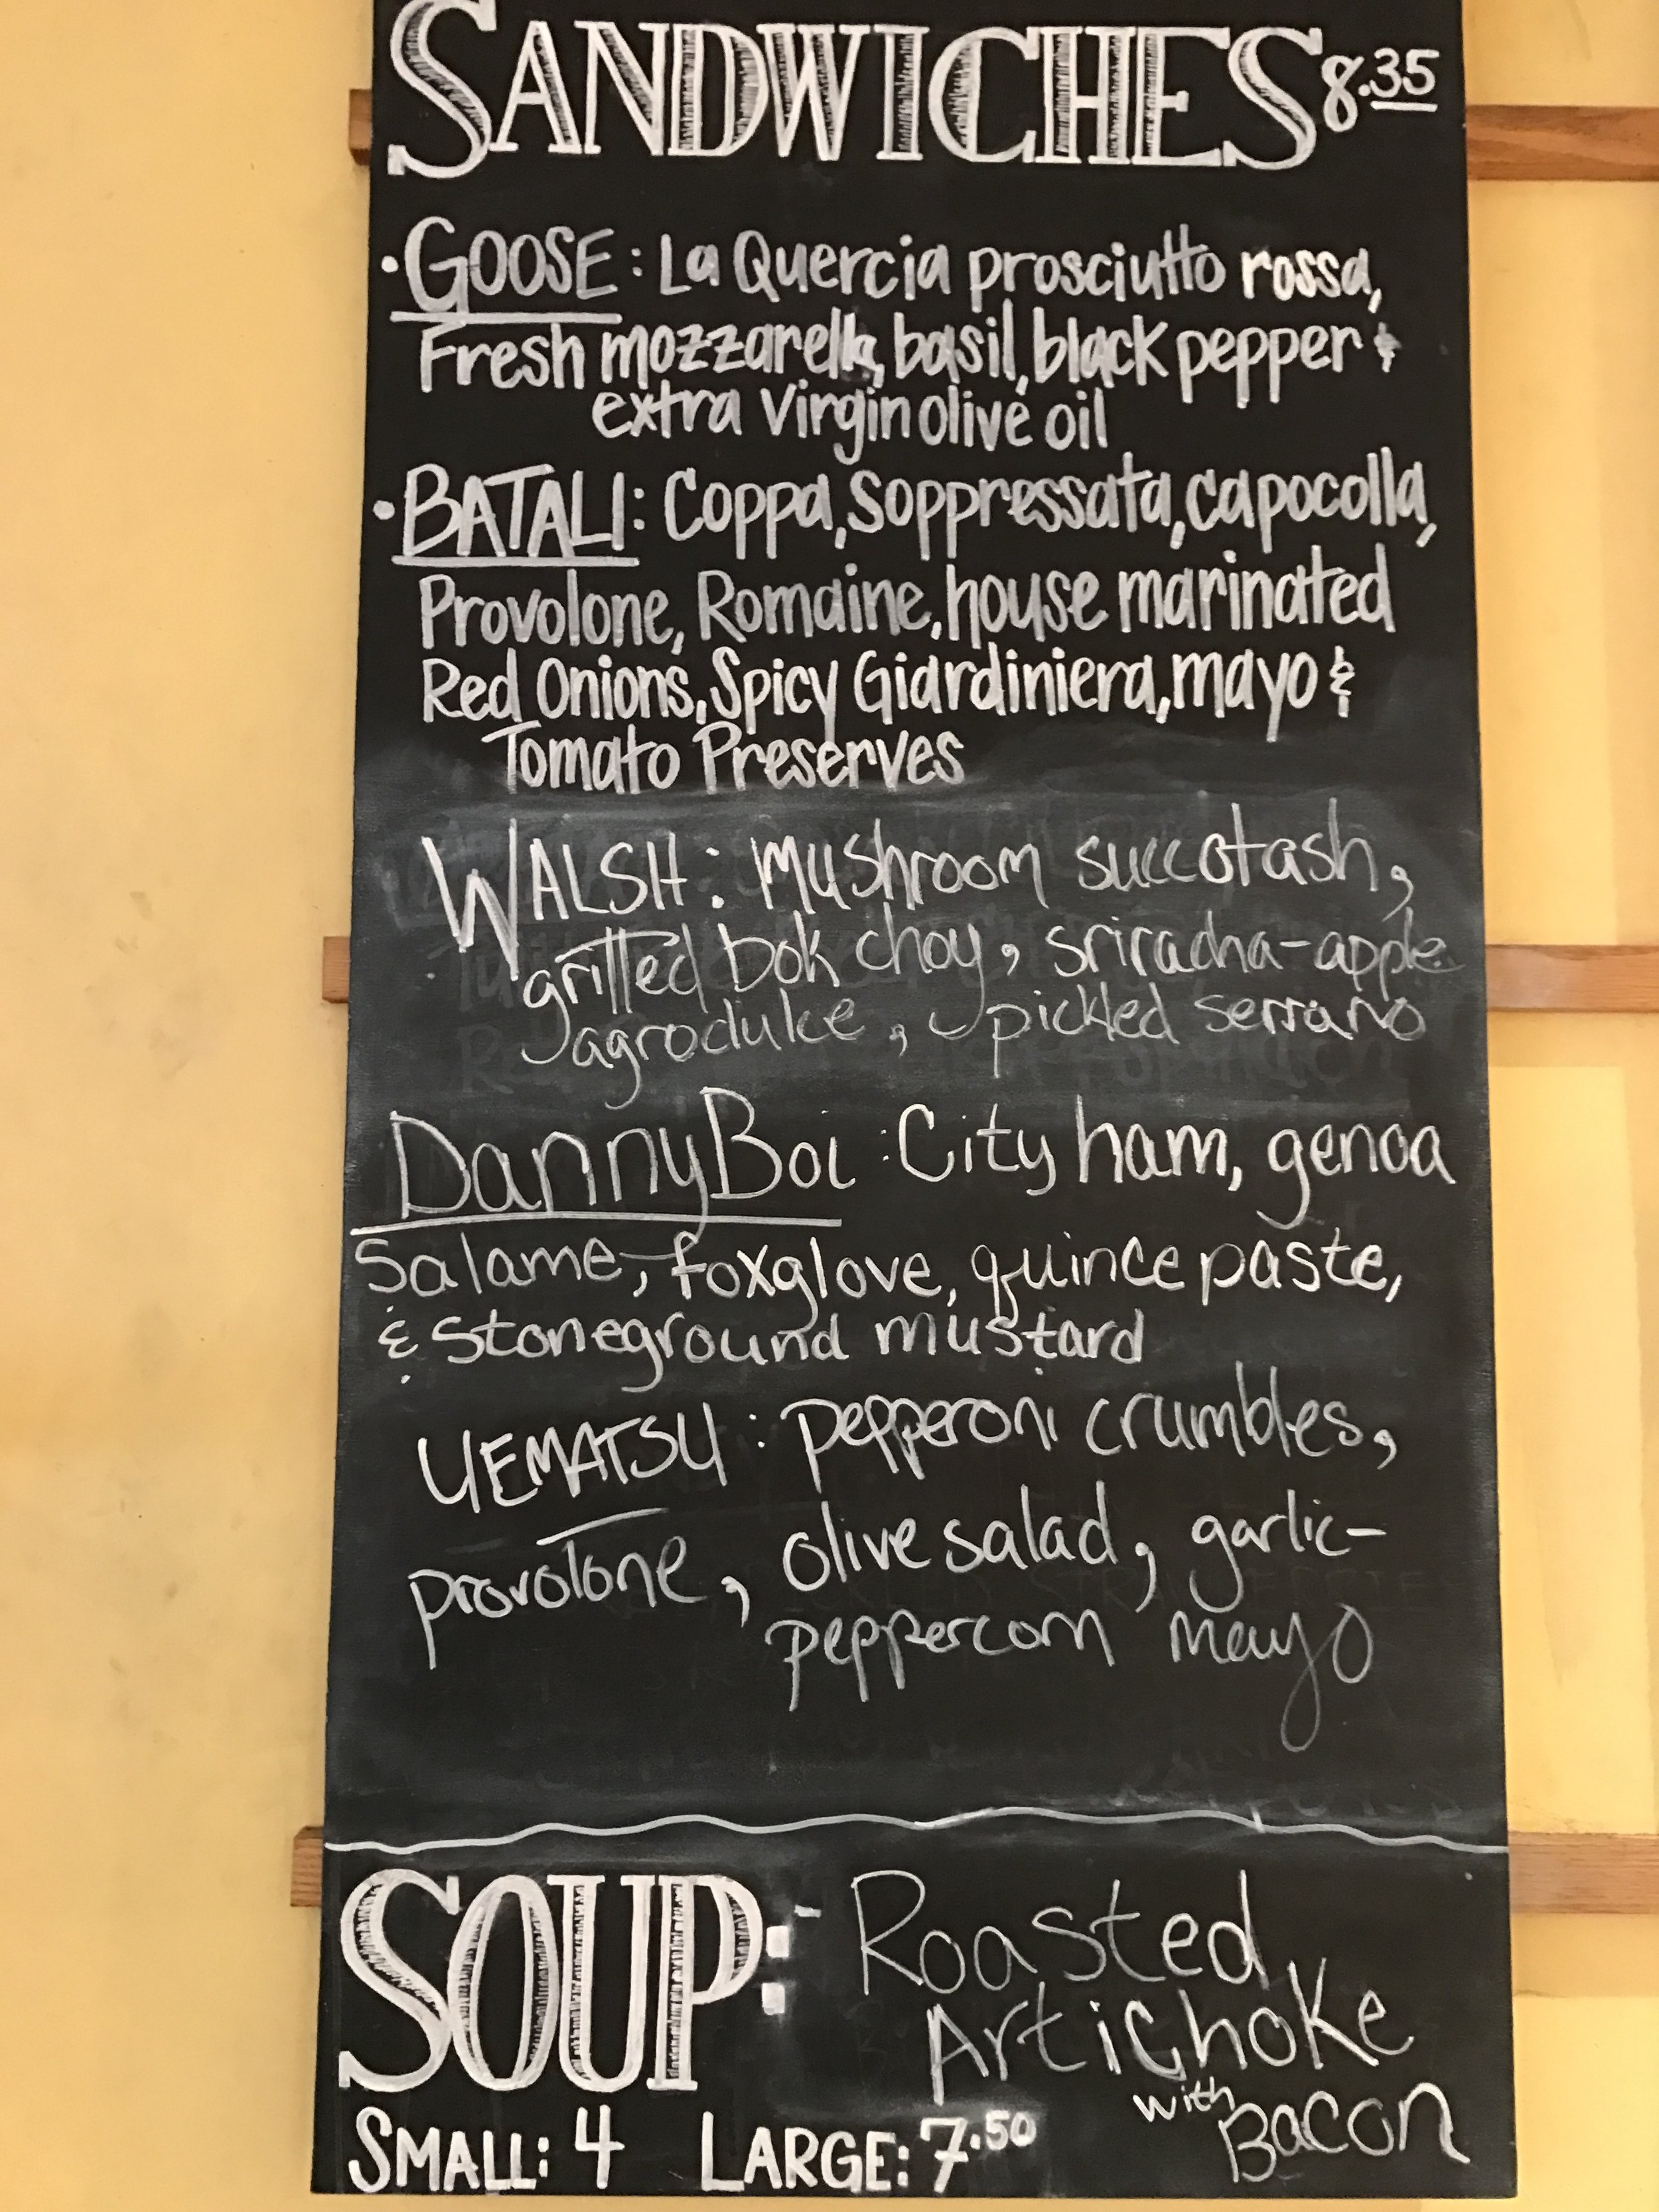 SANDWICHES 8.35
• GOOSE: La Quercia prosciutto rossa,
Fresh mozzarella, basil, black pepper &
extra Virgin olive oil
• BATALI: Coppa, Soppressata, capocolla,
Provolone, Romaine, house marinated
Red Onions, Spicy Giardiniera, mayo &
Tomato Preserves
WALSH: mushroom succotash,
grilled bok choy, sriracha-apple
agrodulce, pickled serrano
DannyBoi: City ham, genoa
Salame, foxglove, quince paste,
& Stoneground mustard
UEMATSU: pepperoni crumbles,
provolone, olive salad, garlic-
peppercorn mayo
SOUP: Roasted
Artichoke
with Bacon
SMALL: 4 LARGE: 7.50